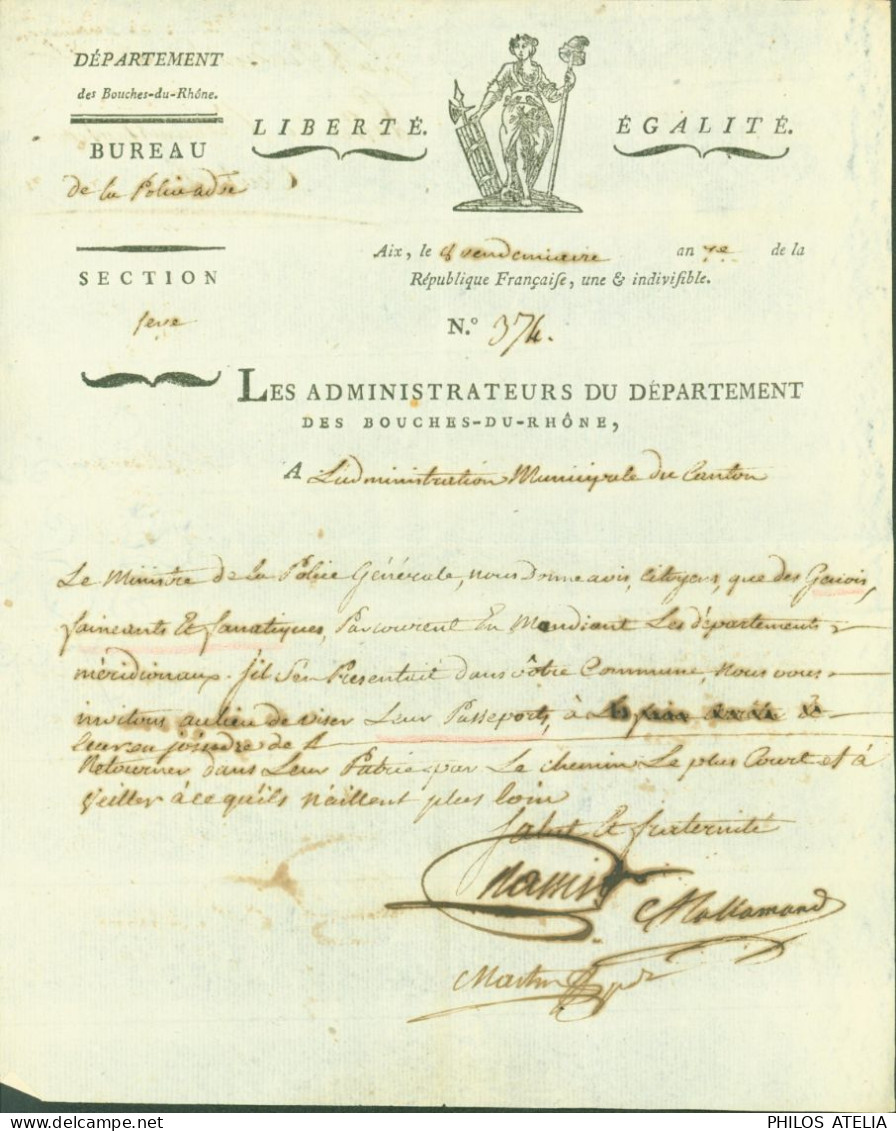 DÉPARTEMENT
des Bouches-du-Rhône.
BUREAU
de la Police adve
SECTION
1ere
LIBERTÉ. ÉGALITÉ.
Aix, le 8 vendemiaire an 7e de la
République Françaiſe, une & indiviſible.
N.° 374.
LES ADMINISTRATEURS DU DÉPARTEMENT
DES BOUCHES-DU-RHÔNE,
A L'administration Municipale du Canton
Le Ministre de la Police Générale, nous donne avis, Citoyens, que des Genois,
faineants Et fanatiques, Parcourent En Mandiant Les départements
méridionaux. s'il s'en Presentait dans vôtre Commune, Nous vous
invitons au lieu de viser Leur Passeports, à
leur enjoindre de
Retourner dans Leur Patrie par Le chemin Le plus Court et à
Veiller à ce qu'ils n'aillent plus loin
Salut Et fraternité
Mallamand
Martin
PHILOS ATELIA